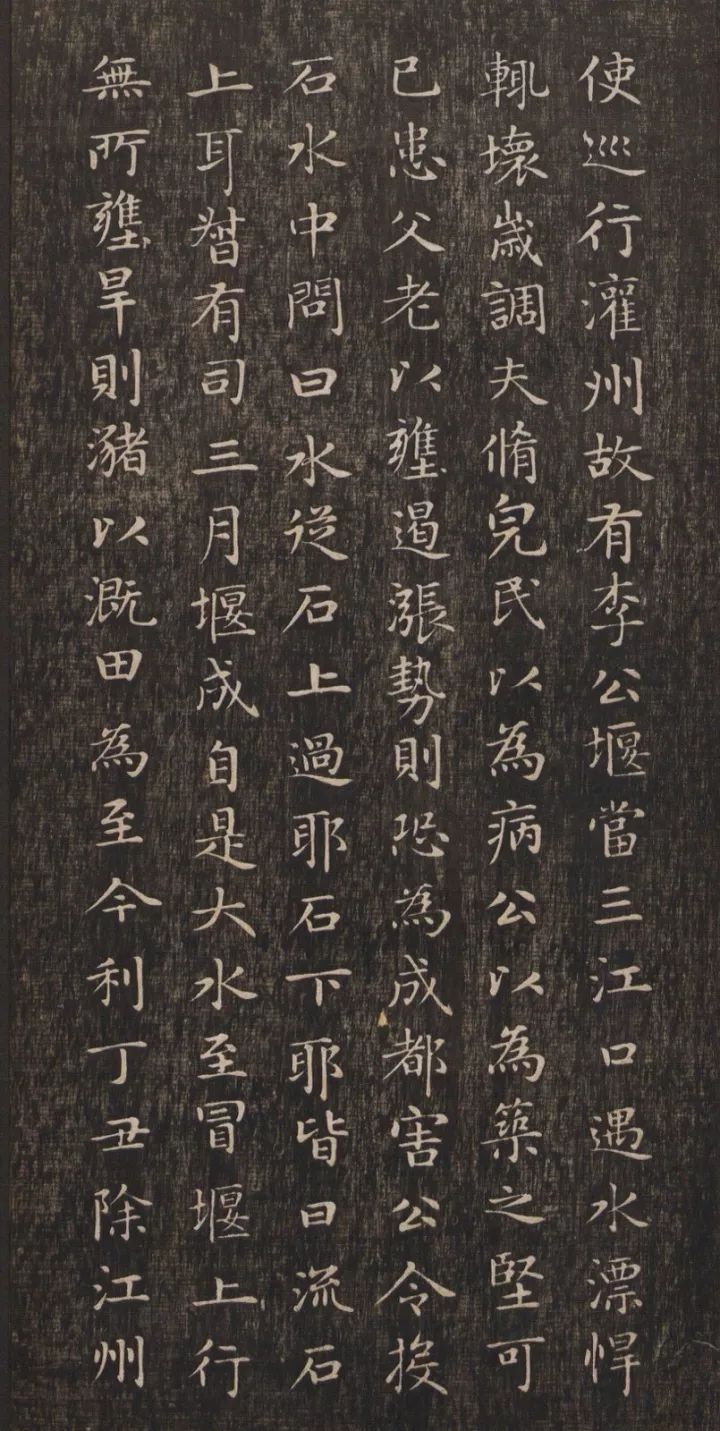 使巡行灌州故有李公堰當三江口遇水漂悍
輒壞嵗調夫脩完民以為病公以為築之堅可
已患父老以壅遏漲勢則恐為成都害公令投
石水中問曰水從石上過耶石下耶皆曰流石
上耳督有司三月堰成自是大水至冒堰上行
無所壅旱則瀦以溉田為至今利丁丑除江州